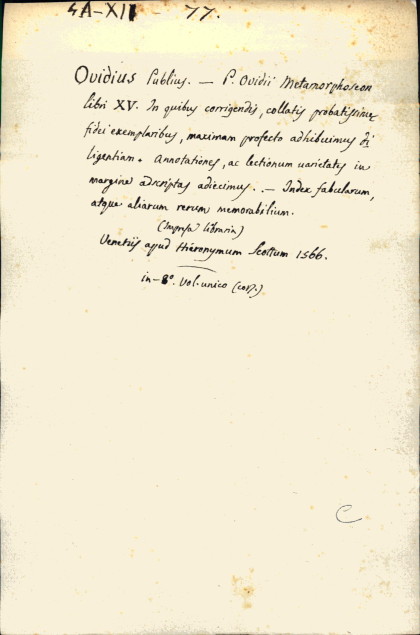 4A-XII - 77.
Ovidius Publius. — P. Ovidii Metamorphoseon
libri XV. In quibus corrigendis, collatis probatissimę
fidei exemplaribus, maximam profecto adhibuimus di
ligentiam. Annotationes, ac lectionum varietates in
margine adscriptas adiecimus. — Index fabularum,
atque aliarum rerum memorabilium.
(Impresa libraria)
Venetiis apud Hieronymum Scottum 1566.
in-8º. Vol. unico
C